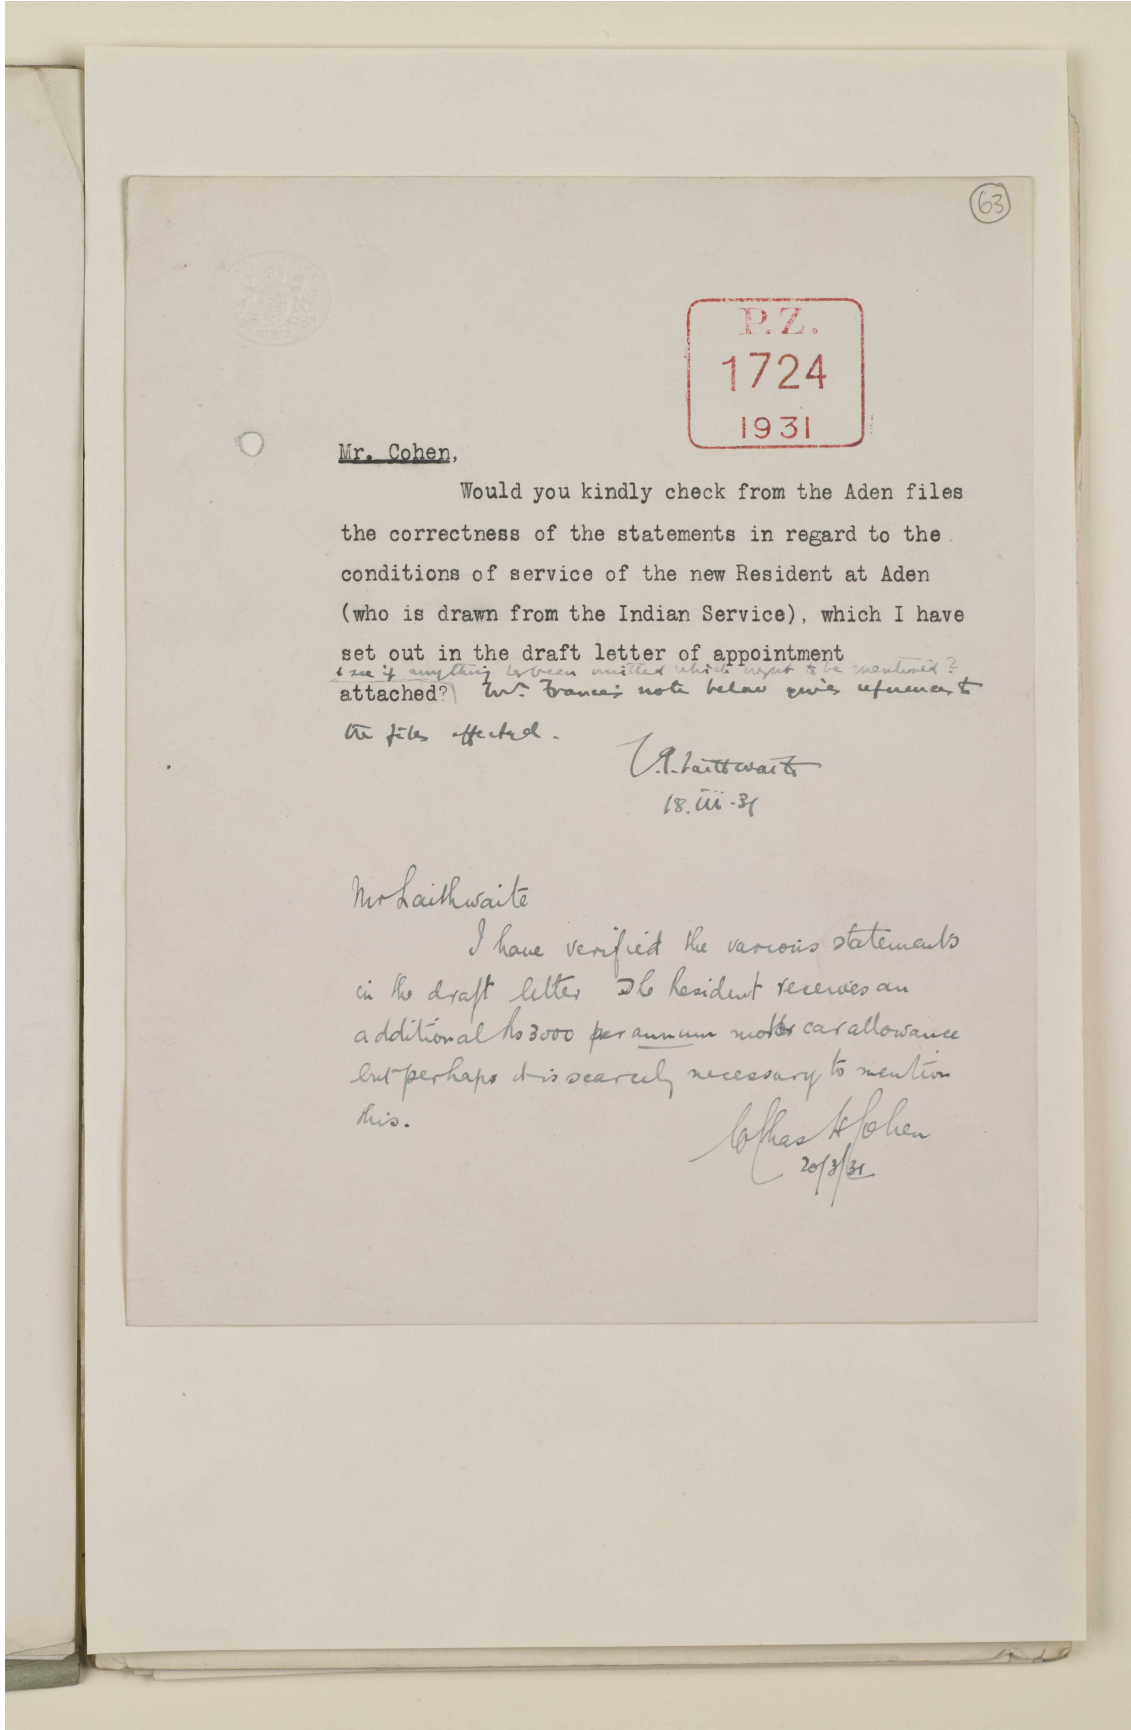 63
P.Z.
1724
1931
Mr. Cohen,
Would you kindly check from the Aden files
the correctness of the statements in regard to the
conditions of service of the new Resident at Aden
(who is drawn from the Indian Service), which I have
set out in the draft letter of appointment
& see if anything has been omitted which ought to be mentioned?
attached? Mr. France's note below gives references to
the files affected.
J.G. Laithwaite
18.iii.31
Mr Laithwaite
I have verified the various statements
in the draft letter The Resident receives an
additional Rs 3000 per annum motor car allowance
but perhaps it is scarcely necessary to mention
this.
Chas H Cohen
20/3/31